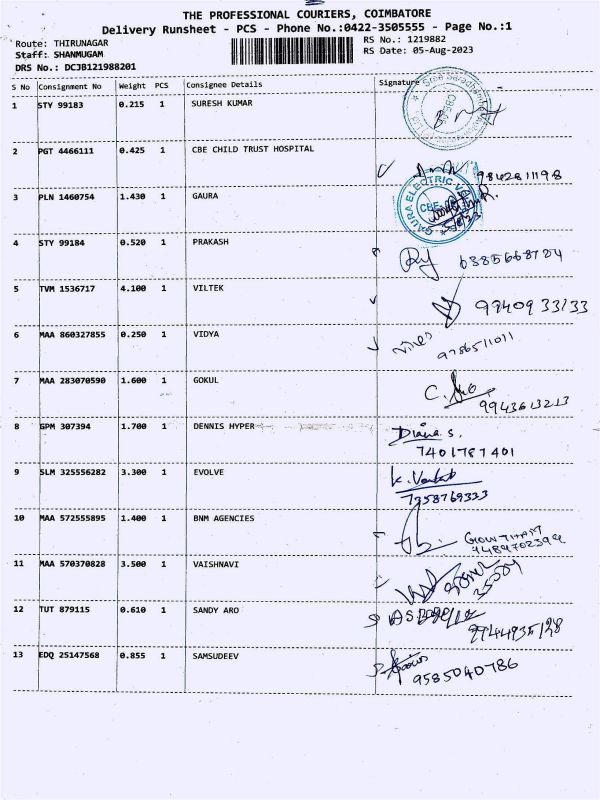 THE PROFESSIONAL COURIERS, COIMBATORE
Delivery Runsheet - PCS - Phone No.:0422-3505555 - Page No.:1
Route: THIRUNAGAR RS No.: 1219882
Staff: SHANMUGAM RS Date: 05-Aug-2023
DRS No.: DCJB121988201
S No Consignment No Weight PCS Consignee Details Signature
1 STY 99183 0.215 1 SURESH KUMAR
2 PGT 4466111 0.425 1 CBE CHILD TRUST HOSPITAL
9842811198
3 PLN 1460754 1.430 1 GAURA
GAURA ELECTRIC
CBE
4 STY 99184 0.520 1 PRAKASH
6385668784
5 TVM 1536717 4.100 1 VILTEK
9940933133
6 MAA 860327855 0.250 1 VIDYA
9786511011
7 MAA 283070590 1.600 1 GOKUL
9943613213
8 GPM 307394 1.700 1 DENNIS HYPER
Diana S.
7401787401
9 SLM 325556282 3.300 1 EVOLVE
K. Venkat
7358769333
10 MAA 572555895 1.400 1 BNM AGENCIES
GOWTHAM
9489702399
11 MAA 570370828 3.500 1 VAISHNAVI
12 TUT 879115 0.610 1 SANDY ARO
9944935128
13 EDQ 25147568 0.855 1 SAMSUDEEV
9585040786